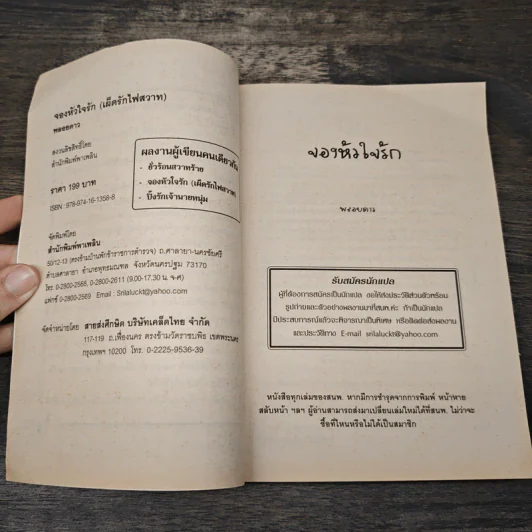 จองหัวใจรัก (เผ็ดรักไฟสวาท)
พลอยดาว
สงวนลิขสิทธิ์โดย
สำนักพิมพ์พาเพลิน
ราคา 199 บาท
ISBN : 978-974-16-1358-8
ผลงานผู้เขียนคนเดียวกัน
- ชั่วร้อนสวาทร้าย
- จองหัวใจรัก (เผ็ดรักไฟสวาท)
- ปิ๊งรักเจ้านายหนุ่ม
จัดพิมพ์โดย
สำนักพิมพ์พาเพลิน
50/12-13 (ตรงข้ามบ้านพักข้าราชการตำรวจ) ถ.ศาลายา-นครชัยศรี
ตำบลศาลายา อำเภอพุทธมณฑล จังหวัดนครปฐม 73170
โทร. 0-2800-2565, 0-2800-2611 (9.00-17.30 น. จ-ศ)
แฟกซ์ 0-2800-2569 Email : Srilaluckt@yahoo.com
จัดจำหน่ายโดย สายส่งศึกษิต บริษัทเคล็ดไทย จำกัด
117-119 ถ.เฟื่องนคร ตรงข้ามวัดราชบพิธ เขตพระนคร
กรุงเทพฯ 10200 โทร. 0-2225-9536-39
จองหัวใจรัก
พลอยดาว
รับสมัครนักแปล
ผู้ที่ต้องการสมัครเป็นนักแปล ขอให้ส่งประวัติส่วนตัวพร้อม
รูปถ่ายและตัวอย่างผลงานมาที่สนพ.ค่ะ ถ้าเป็นนักแปล
มีประสบการณ์แล้วจะพิจารณาเป็นพิเศษ หรือติดต่อส่งผลงาน
และประวัติทาง E-mail srilaluckt@yahoo.com
หนังสือทุกเล่มของสนพ. หากมีการชำรุดจากการพิมพ์ หน้าหาย
สลับหน้า ฯลฯ ผู้อ่านสามารถส่งมาเปลี่ยนเล่มใหม่ได้ที่สนพ. ไม่ว่าจะ
ซื้อที่ไหนหรือไม่ได้เป็นสมาชิก